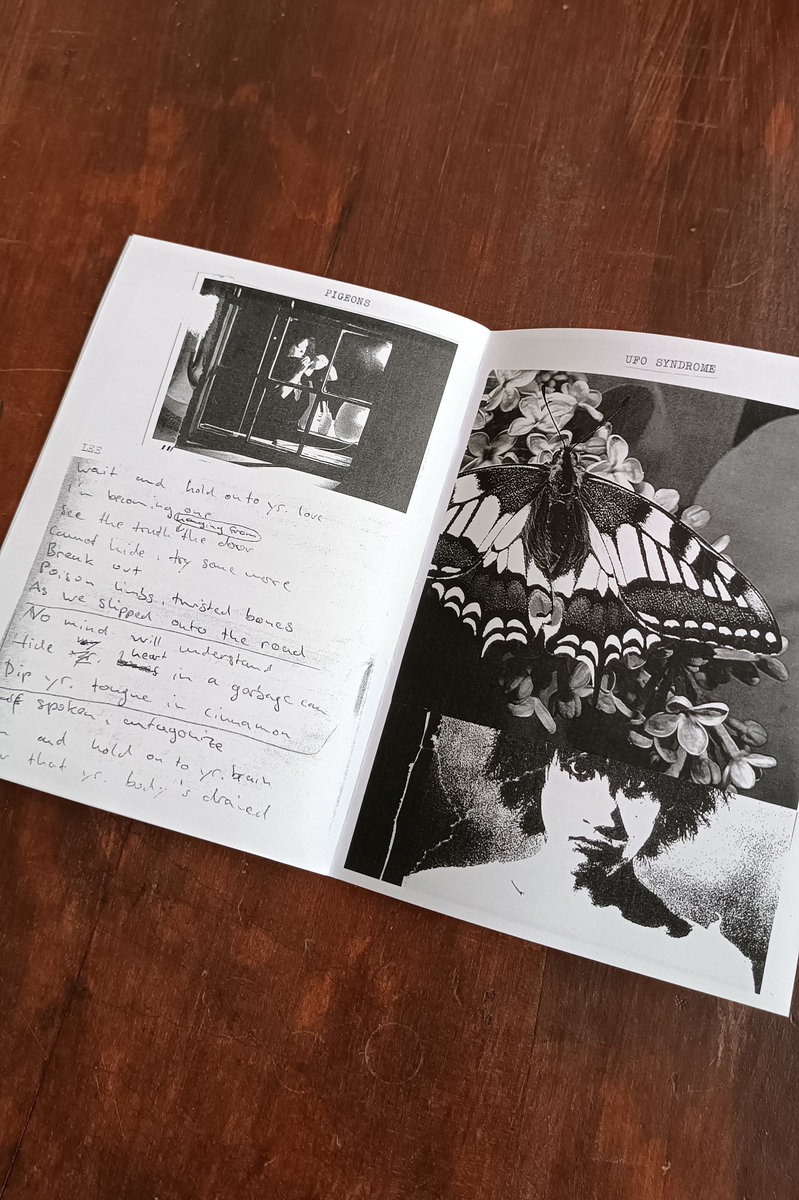 PIGEONS
LEE
wait and hold onto yr. love
I'm becoming one
hanging from
see the truth the door
Cannot hide, try some more
Break out
Poison limbs, twisted bones
As we slipped onto the road
No mind will understand
Hide yr. heart in a garbage can
Dip yr. tongue in cinnamon
spoken, antagonize
and hold on to yr. brain
that yr. body is drained
UFO SYNDROME